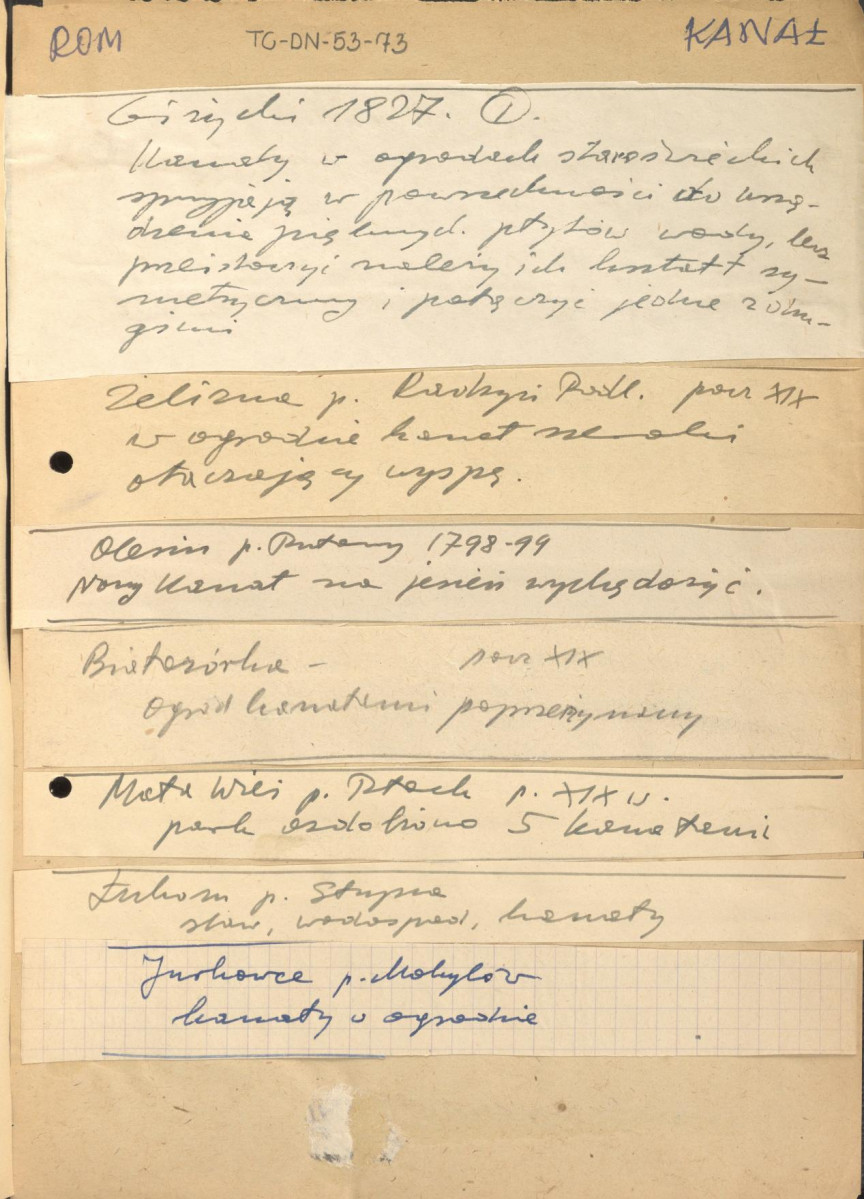 ROM TC-DN-53-73 KANAŁ
Giżycki 1827. I.
Kanały w ogrodach staroświeckich
sprzyjają w powszechności do urzą-
dzenia pięknych płytów wody, lecz
przeistoczyć należy ich kształt sy-
metryczny i połączyć jedne z dru-
giemi
Żelizna p. Radzyń Podl. pocz XIX
w ogrodzie kanał szeroki
otaczający wyspę.
Olesin p. 1798-99
Nowy Kanał na jesień wychędożyć.
Białozórka - pocz XIX
ogród kanałami poprzerzynany
Mała Wieś p. Płock p. XIX w.
park ozdobiono 5 kanałami
p.
staw, wodospad, kanały
Jurkowce p. Mohylów
kanały w ogrodzie